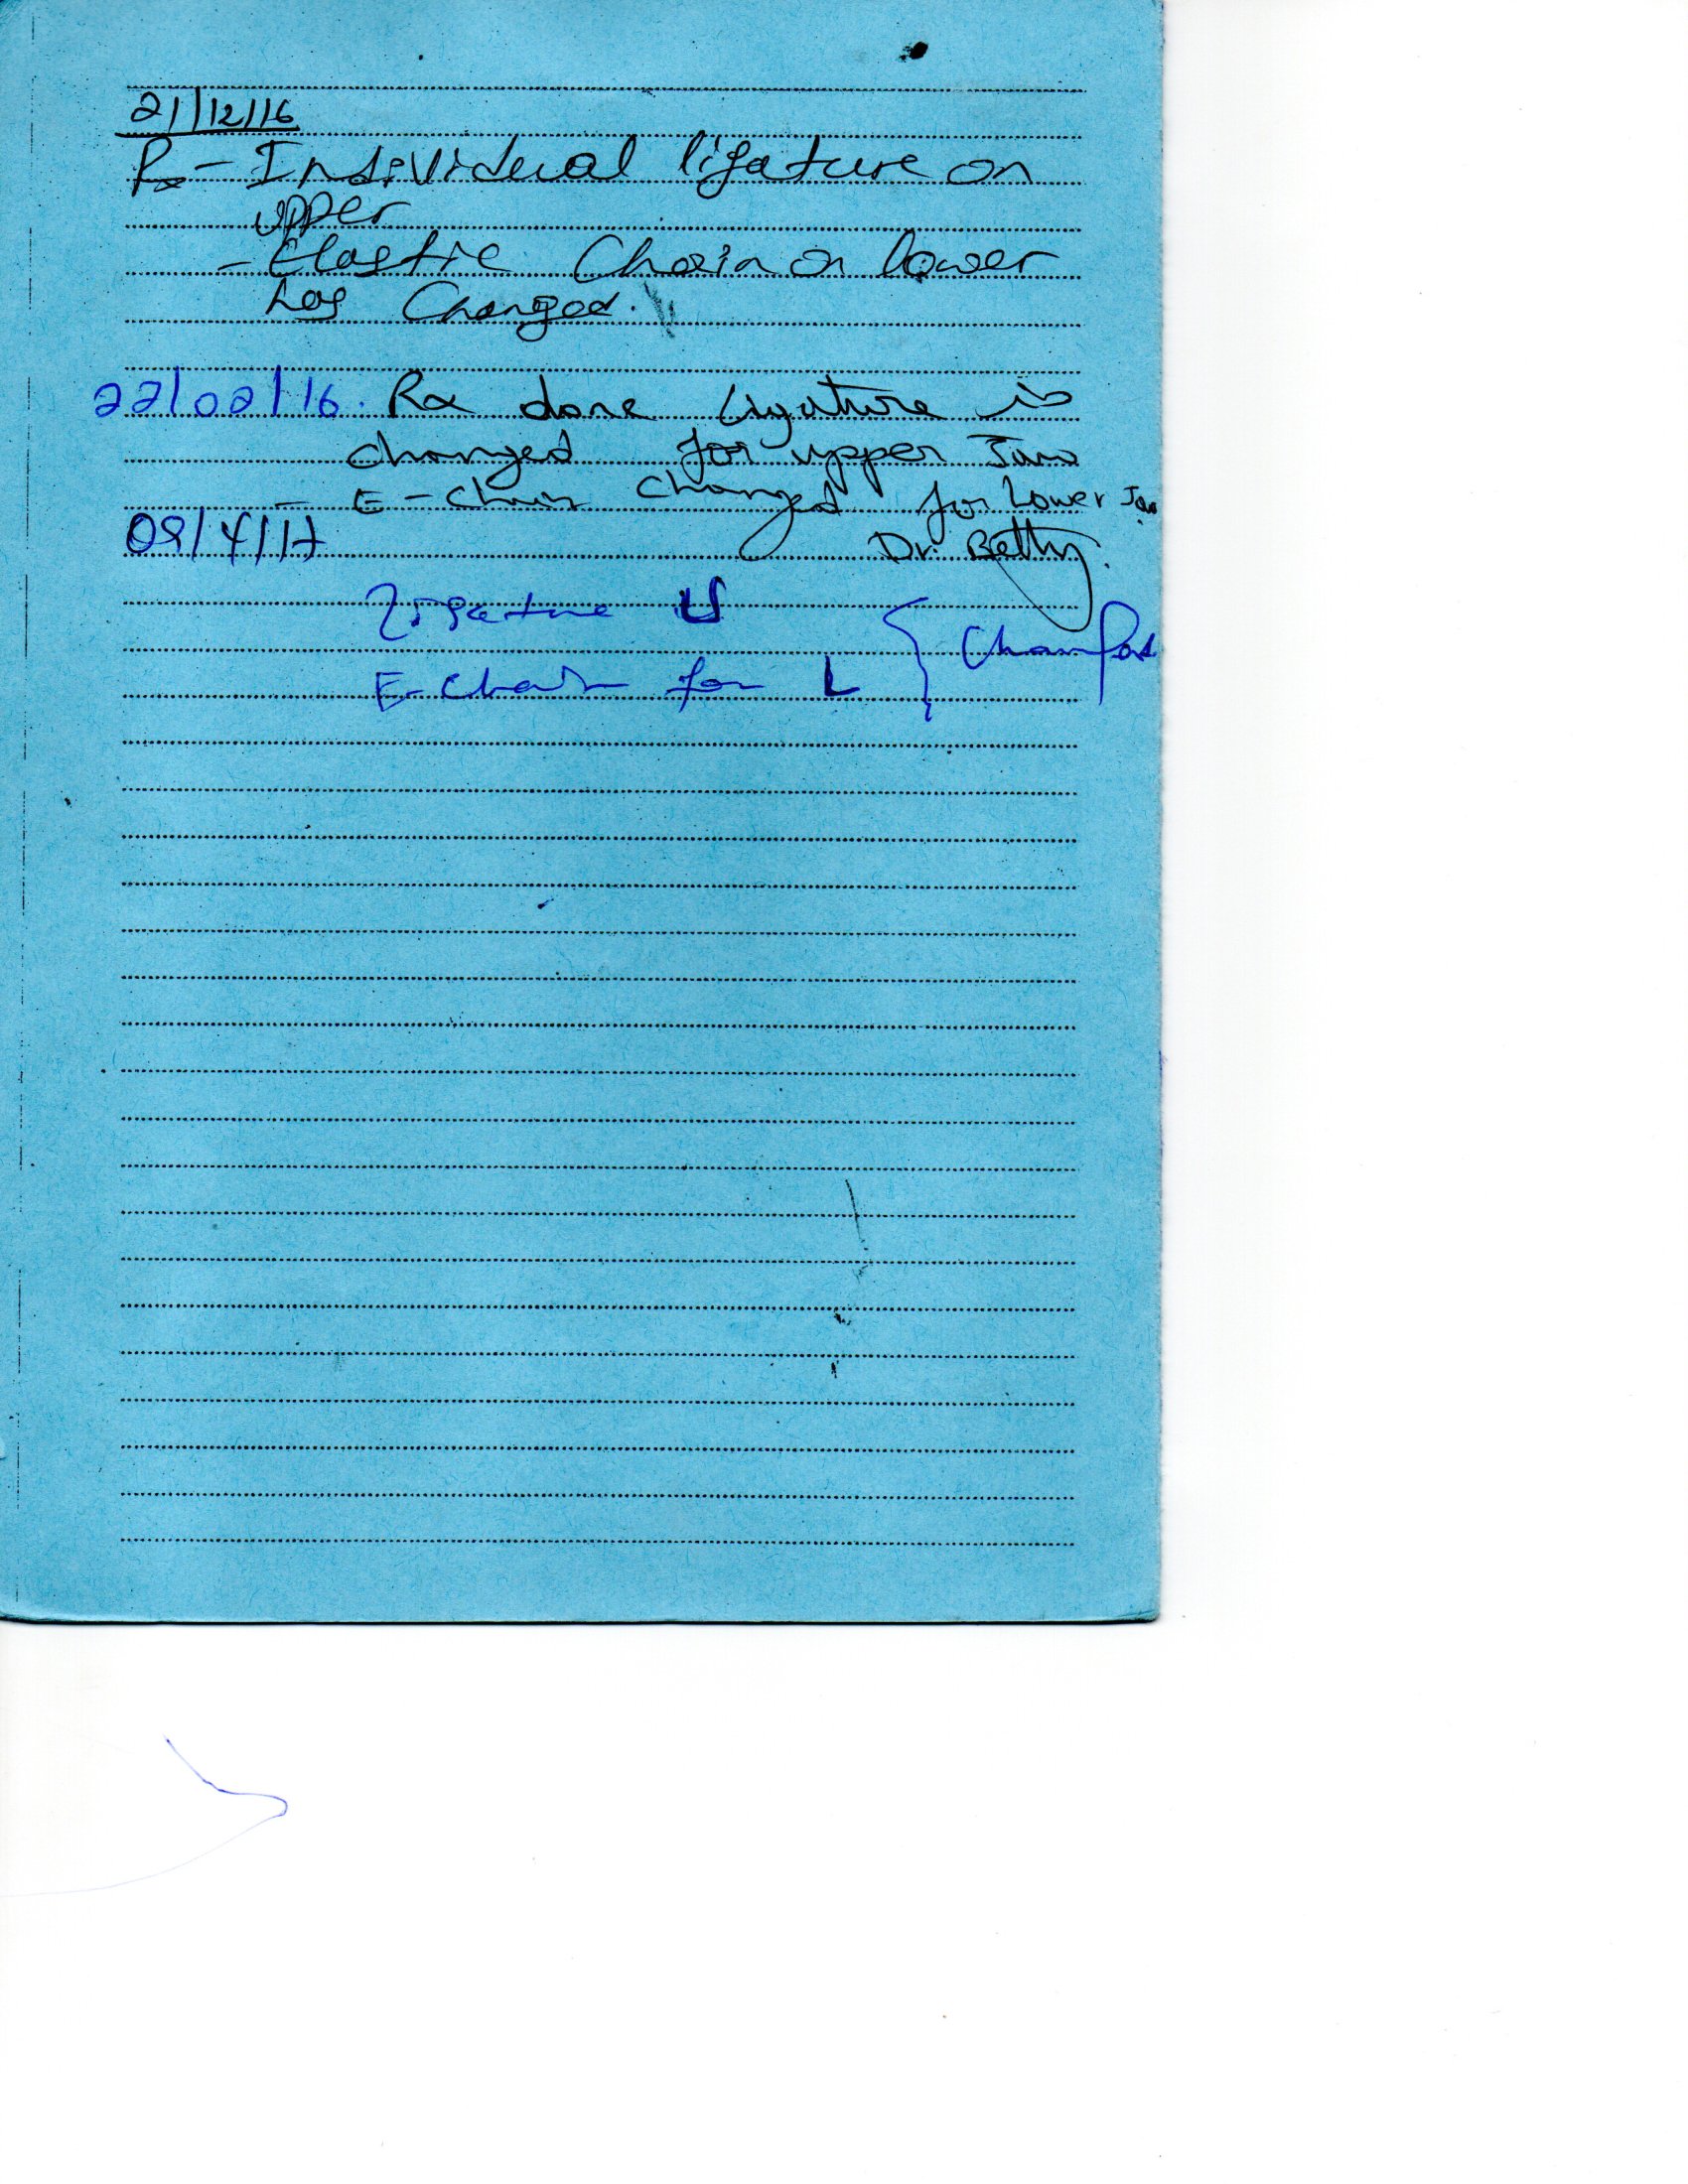 21/12/16
Rx - Individual ligature on
upper
- Elastic Chain on lower
has Changed.
22/02/16. Rx done ligature is
changed for upper Jaw
- E-chain changed for Lower Jaw
09/4/17
Dr. Betty
Ligature U
E-Chain for L